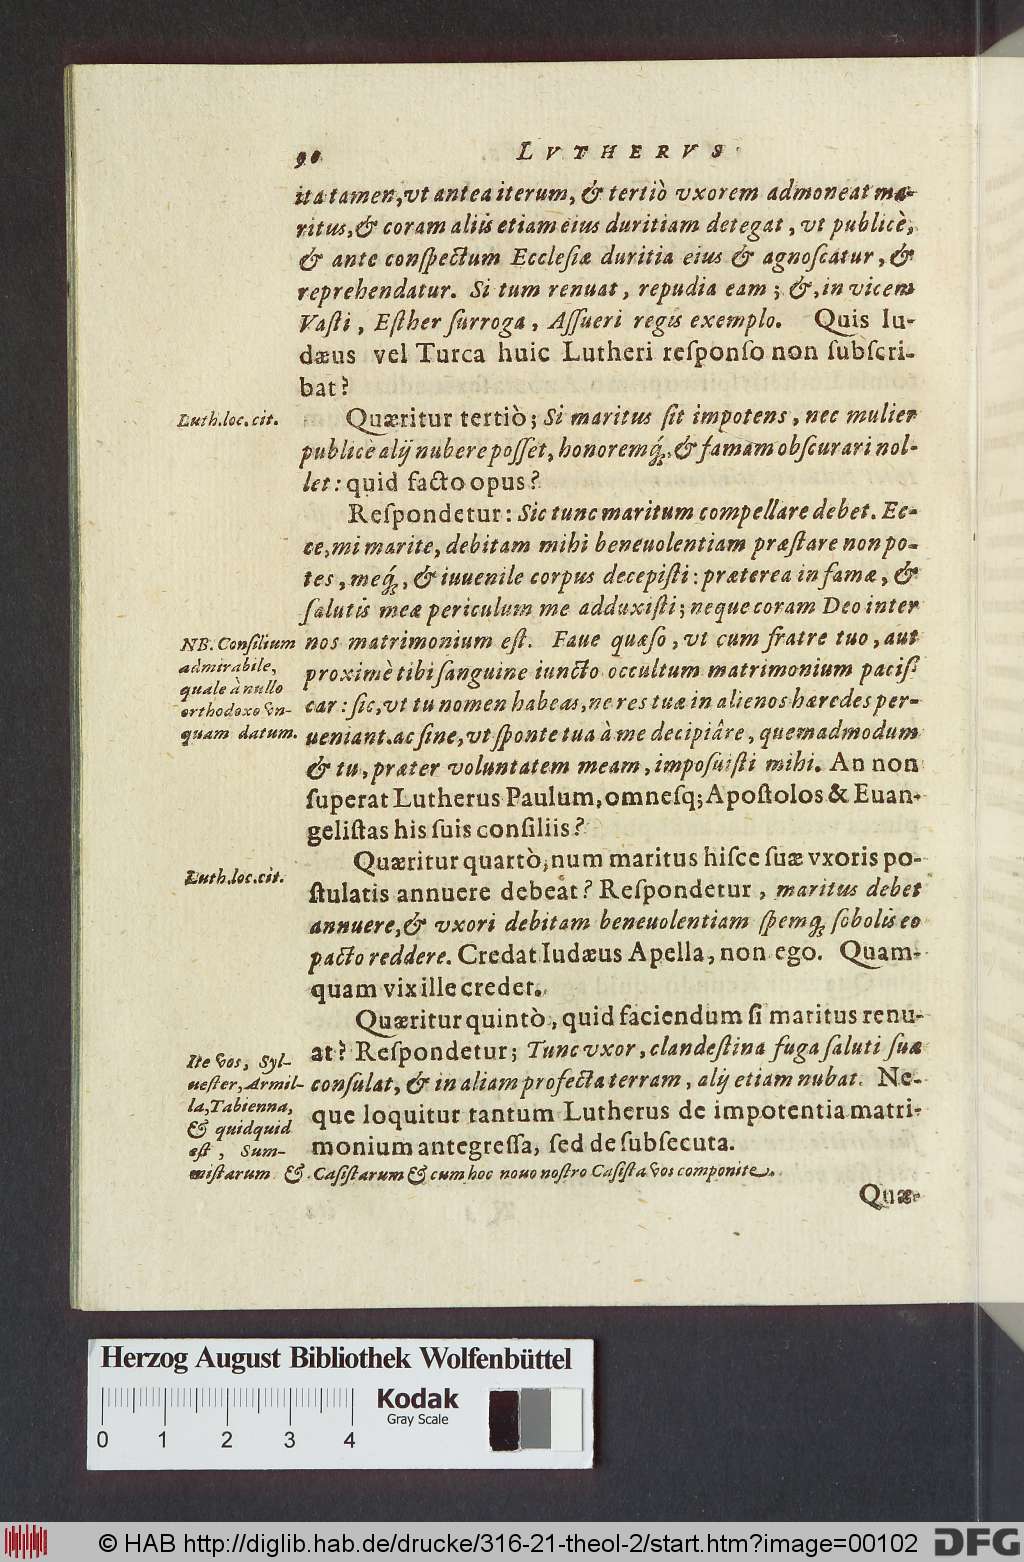 90 LVTHERVS
ita tamen, vt antea iterum, & tertiò vxorem admoneat ma-
ritus, & coram aliis etiam eius duritiam detegat, vt publicè,
& ante conſpectum Eccleſiæ duritia eius & agnoſcatur, &
reprehendatur. Si tum renuat, repudia eam; &, in vicem
Vaſti, Eſther ſurroga, Aſſueri regis exemplo. Quis Iu-
dæus vel Turca huic Lutheri reſponſo non ſubſcri-
bat?
Luth. loc. cit.
Quæritur tertiò; Si maritus ſit impotens, nec mulier
publicè alij nubere poſſet, honoremq́;, & famam obſcurari nol-
let: quid facto opus?
Reſpondetur: Sic tunc maritum compellare debet. Ec-
ce, mi marite, debitam mihi beneuolentiam præſtare non po-
tes, meq́;, & iuuenile corpus decepiſti: præterea in famæ, &
ſalutis meæ periculum me adduxiſti; neque coram Deo inter
nos matrimonium eſt. Faue quæſo, vt cum fratre tuo, aut
proximè tibi ſanguine iuncto occultum matrimonium paciſ-
car: ſic, vt tu nomen habeas, ne res tuæ in alienos hæredes per-
ueniant. ac ſine, vt ſponte tua à me decipiâre, quemadmodum
& tu, præter voluntatem meam, impoſuiſti mihi. An non
ſuperat Lutherus Paulum, omneſq; Apoſtolos & Euan-
geliſtas his ſuis conſiliis?
NB. Conſilium
admirabile,
quale à nullo
orthodoxo vn-
quam datum.
Luth. loc. cit.
Quæritur quartò, num maritus hiſce ſuæ vxoris po-
ſtulatis annuere debeat? Reſpondetur, maritus debet
annuere, & vxori debitam beneuolentiam ſpemq́; ſobolis eo
pacto reddere. Credat Iudæus Apella, non ego. Quam-
quam vix ille credet.
Quæritur quintò, quid faciendum ſi maritus renu-
at? Reſpondetur; Tunc vxor, clandeſtina fuga ſaluti ſuæ
conſulat, & in aliam profecta terram, alij etiam nubat. Ne-
que loquitur tantum Lutherus de impotentia matri-
monium antegreſſa, ſed de ſubſecuta.
Ite vos, Syl-
ueſter, Armil-
la, Tabienna,
& quidquid
eſt, Sum-
miſtarum & Caſiſtarum & cum hoc nouo noſtro Caſiſta vos componite.
Quæ-
Herzog August Bibliothek Wolfenbüttel
Kodak
Gray Scale
0 1 2 3 4
© HAB http://diglib.hab.de/drucke/316-21-theol-2/start.htm?image=00102
DFG